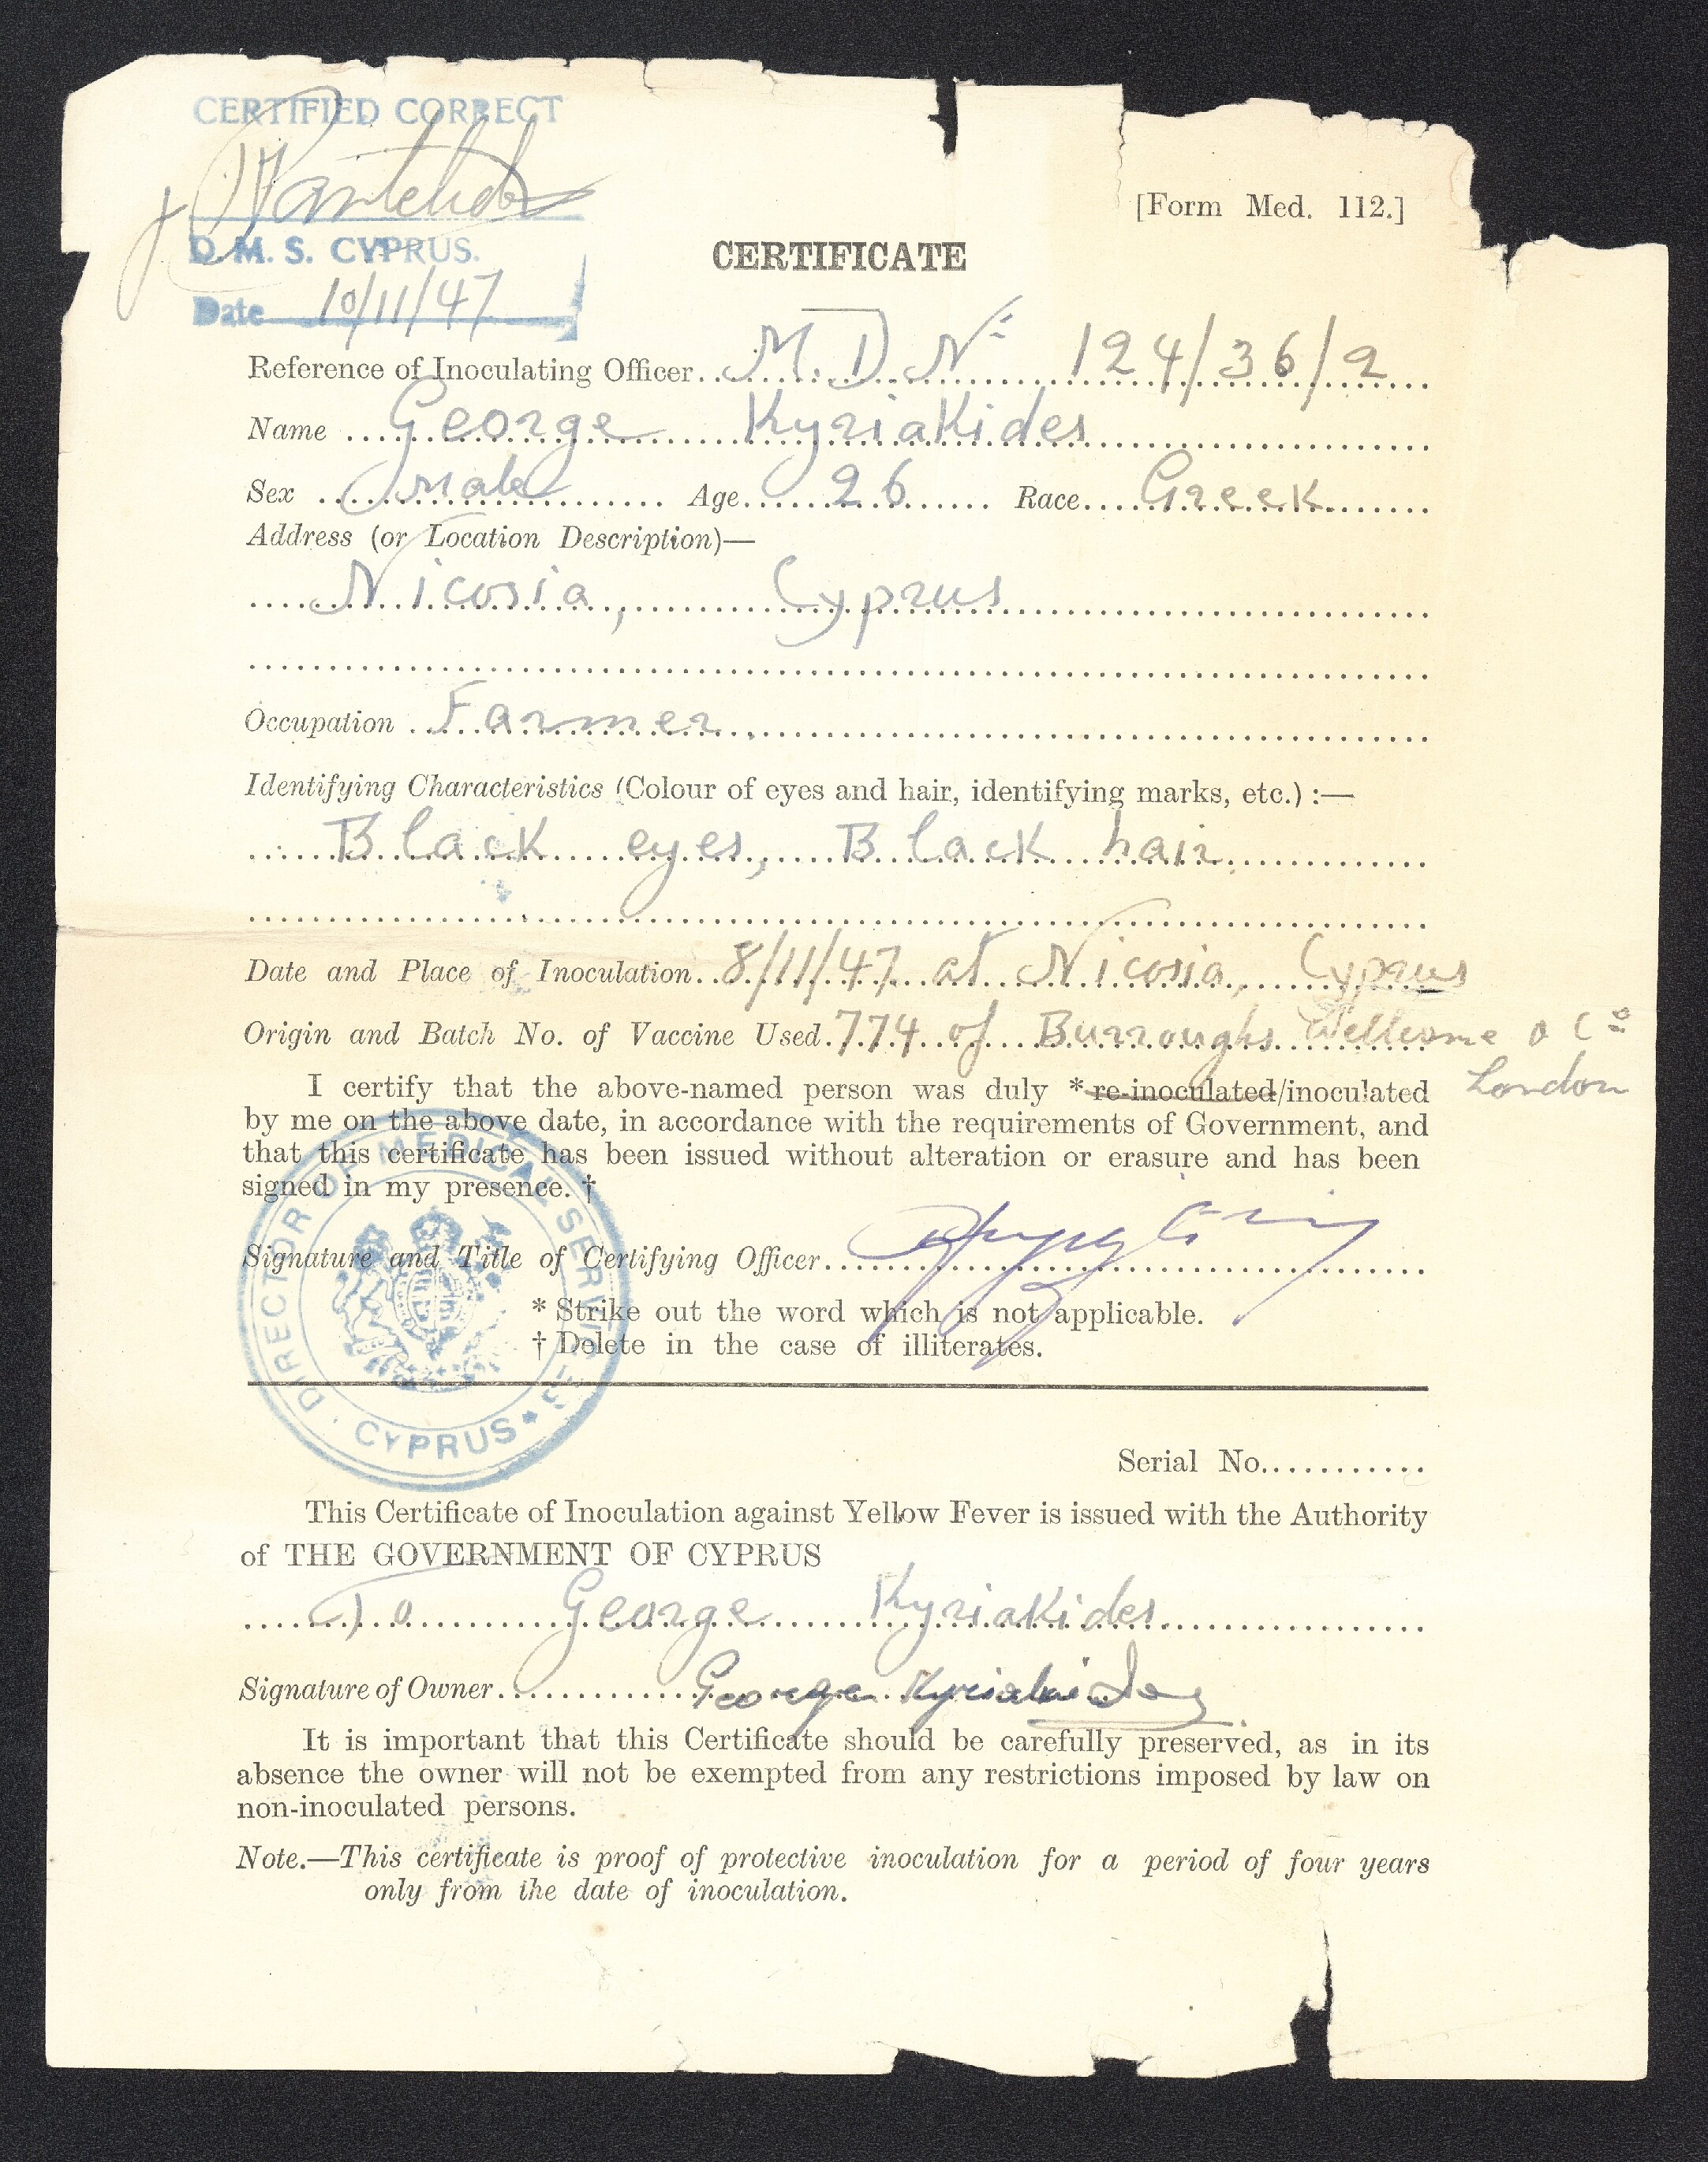 CERTIFIED CORRECT
D. M. S. CYPRUS.
Date 10/11/47
[Form Med. 112.]
CERTIFICATE
Reference of Inoculating Officer M. D Nº 124/36/2
Name George Kyriakides
Sex Male Age 26 Race Greek
Address (or Location Description)—
Nicosia, Cyprus
Occupation Farmer
Identifying Characteristics (Colour of eyes and hair, identifying marks, etc.) :—
Black eyes, Black hair
Date and Place of Inoculation 8/11/47 at Nicosia, Cyprus
Origin and Batch No. of Vaccine Used 774 of Burroughs Wellcome & Cº
London
I certify that the above-named person was duly * re-inoculated/inoculated
by me on the above date, in accordance with the requirements of Government, and
that this certificate has been issued without alteration or erasure and has been
signed in my presence. †
Signature and Title of Certifying Officer
* Strike out the word which is not applicable.
† Delete in the case of illiterates.
DIRECTOR OF MEDICAL SERVICES
CYPRUS
Serial No.
This Certificate of Inoculation against Yellow Fever is issued with the Authority
of THE GOVERNMENT OF CYPRUS
To George Kyriakides
Signature of Owner George Kyriakides
It is important that this Certificate should be carefully preserved, as in its
absence the owner will not be exempted from any restrictions imposed by law on
non-inoculated persons.
Note.—This certificate is proof of protective inoculation for a period of four years
only from the date of inoculation.